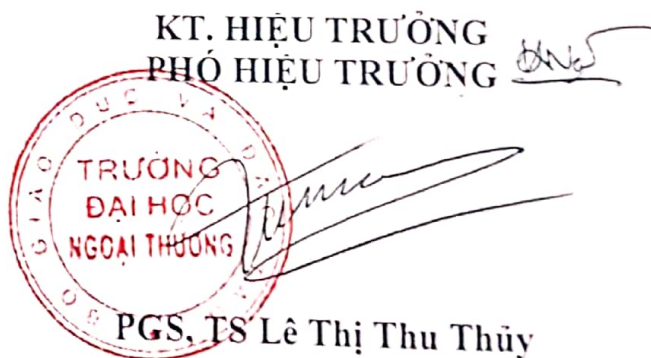 KT. HIỆU TRƯỞNG
PHÓ HIỆU TRƯỞNG
BỘ GIÁO DỤC VÀ ĐÀO
TRƯỜNG
ĐẠI HỌC
NGOẠI THƯƠNG
PGS, TS Lê Thị Thu Thủy